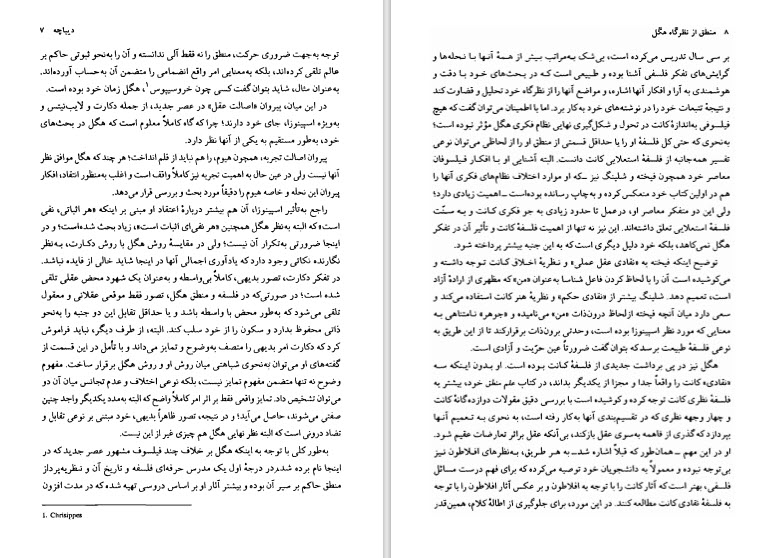 دیباچه ۷
توجه به‌جهت ضروری حرکت، منطق را نه فقط آلی ندانسته و آن را به‌نحو ثبوتی حاکم بر
عالم تلقی کرده‌اند، بلکه به‌معنایی امر واقع انضمامی را متضمن آن به‌حساب آورده‌اند.
به‌عنوان مثال، شاید بتوان گفت کسی چون خروسیپوس۱، هگل زمان خود بوده است.
در این میان، پیروان «اصالت عقل» در عصر جدید، از جمله دکارت و لایب‌نیتس و
به‌ویژه اسپینوزا، جای خود دارند؛ چرا که گاه کاملاً معلوم است که هگل در بحث‌های
خود، به‌طور مستقیم به یکی از آنها نظر دارد.
پیروان اصالت تجربه، همچون هیوم، را هم نباید از قلم انداخت؛ هر چند که هگل موافق نظر
آنها نیست ولی در عین حال به اهمیت تجربه نیز کاملاً واقف است و اغلب به‌منظور انتقاد، افکار
پیروان این نحله و خاصه هیوم را دقیقاً مورد بحث و بررسی قرار می‌دهد.
راجع به‌تأثیر اسپینوزا، آن هم بیشتر دربارهٔ اعتقاد او مبنی بر اینکه «هر اثباتی، نفی
است» که البته به‌نظر هگل همچنین «هر نفی‌ای اثبات است»، زیاد بحث شده‌است؛ و در
اینجا ضرورتی به‌تکرار آن نیست؛ ولی در مقایسهٔ روش هگل با روش دکارت، به‌نظر
نگارنده نکاتی وجود دارد که یادآوری اجمالی آنها در اینجا شاید خالی از فایده نباشد.
در تفکر دکارت، تصور بدیهی، کاملاً بی‌واسطه و به‌عنوان یک شهود محض عقلی تلقی
شده است؛ در صورتی‌که در فلسفه و منطق هگل، تصور فقط موقعی عقلانی و معقول
می‌شود که به‌طور محض با واسطه باشد و یا حداقل تقابل این دو جنبه را به‌نحو
ذاتی محفوظ بدارد و سکون را از خود سلب کند. البته، از طرف دیگر، نباید فراموش
کرد که دکارت امر بدیهی را متصف به‌وضوح و تمایز می‌داند و با تأمل در این قسمت از
گفته‌های او می‌توان به‌نحوی شباهتی میان روش او و روش هگل برقرار ساخت. مفهوم
وضوح نه تنها متضمن مفهوم تمایز نیست، بلکه نوعی اختلاف و عدم تجانس میان آن دو
می‌توان تشخیص داد. تمایز واقعی فقط بر اثر امر کاملاً واضح که البته به‌مدد یکدیگر واجد چنین
صفتی می‌شوند، حاصل می‌آید؛ و در نتیجه، تصور ظاهراً بدیهی، خود مبتنی بر نوعی تقابل و
تضاد درونی است که البته نظر نهایی هگل هم چیزی غیر از این نیست.
به‌طور کلی با توجه به اینکه هگل بر خلاف چند فیلسوف مشهور عصر جدید که در
اینجا نام برده شد،در درجهٔ اول یک مدرس حرفه‌ای فلسفه و تاریخ آن و نظریه‌پرداز
منطق حاکم بر سیر آن بوده و بیشتر آثار او بر اساس دروسی تهیه شده که در مدت افزون
1. Chrisippes
۸ منطق از نظرگاه هگل
بر سی سال تدریس می‌کرده است، بی‌شک به‌مراتب بیش از همهٔ آنها با نحله‌ها و
گرایش‌های تفکر فلسفی آشنا بوده و طبیعی است که در بحث‌های خود با دقت و
هوشمندی به آرا و افکار آنها اشاره، و مواضع آنها را از نظرگاه خود تحلیل و قضاوت کند
و نتیجهٔ تتبعات خود را در نوشته‌های خود به‌کار برد. اما با اطمینان می‌توان گفت که هیچ
فیلسوفی به‌اندازهٔ کانت در تحول و شکل‌گیری نهایی نظام فکری هگل مؤثر نبوده است؛
به‌نحوی که حتی کل فلسفهٔ او را یا حداقل قسمتی از منطق او را از لحاظی می‌توان نوعی
تفسیر همه‌جانبه از فلسفهٔ استعلایی کانت دانست. البته آشنایی او با افکار فیلسوفان
معاصر خود همچون فیخته و شلینگ نیز ـ که او موارد اختلاف نظام‌های فکری آنها را
هم در اولین کتاب خود منعکس کرده و به‌چاپ رسانده بوده‌است ـ اهمیت زیادی دارد؛
ولی این دو متفکر معاصر او، در عمل تا حدود زیادی به جو فکری کانت و به سنّت
فلسفهٔ استعلایی تعلق داشته‌اند. این نیز نه تنها از اهمیت فلسفهٔ کانت و تأثیر آن در تفکر
هگل نمی‌کاهد، بلکه خود دلیل دیگری است که به این جنبه بیشتر پرداخته شود.
توضیح اینکه فیخته به «نقادی عقل عملی» و نظریهٔ اخلاق کانت توجه داشته و
می‌کوشیده است آن را با لحاظ کردن فاعل شناسا به‌عنوان «من» که مظهری از ارادهٔ آزاد
است، تعمیم دهد. شلینگ بیشتر از «نقادی حکم» و نظریهٔ هنر کانت استفاده می‌کند و
سعی دارد میان آنچه فیخته ازلحاظ درون‌ذات «من» می‌نامیده و «جوهر» نامتناهی به
معنایی که مورد نظر اسپینوزا بوده است، وحدتی برون‌ذات برقرارکند تا از این طریق به
نوعی فلسفهٔ طبیعت برسد که بتوان گفت ضرورتاً عین حرّیت و آزادی است.
هگل نیز در پی برداشت جدیدی از فلسفهٔ کانت بوده است. او بدون اینکه سه
«نقادی» کانت را واقعاً جدا و مجزا از یکدیگر بداند، در کتاب علم منطق خود، بیشتر به
فلسفهٔ نظری کانت توجه کرده و کوشیده است با بررسی دقیق مقولات دوازده‌گانهٔ کانت
و چهار وجهه نظری که در تقسیم‌بندی آنها به‌کار رفته است، به نحوی به تعمیم آنها
بپردازد که گذری از فاهمه به‌سوی عقل بازکند، بی‌آنکه عقل براثر تعارضات عقیم شود.
او در این مهم ـ همان‌طور که قبلاً اشاره شد ـ به هر طریق، به‌نظرهای افلاطون نیز
بی‌توجه نبوده و معمولاً به دانشجویان خود توصیه می‌کرده که برای فهم درست مسائل
فلسفی، بهتر است که آثار کانت را با توجه به افلاطون و بر عکس آثار افلاطون را با توجه
به فلسفهٔ نقادی کانت مطالعه کنند. در این مورد، برای جلوگیری از اطالهٔ کلام، همین‌قدر